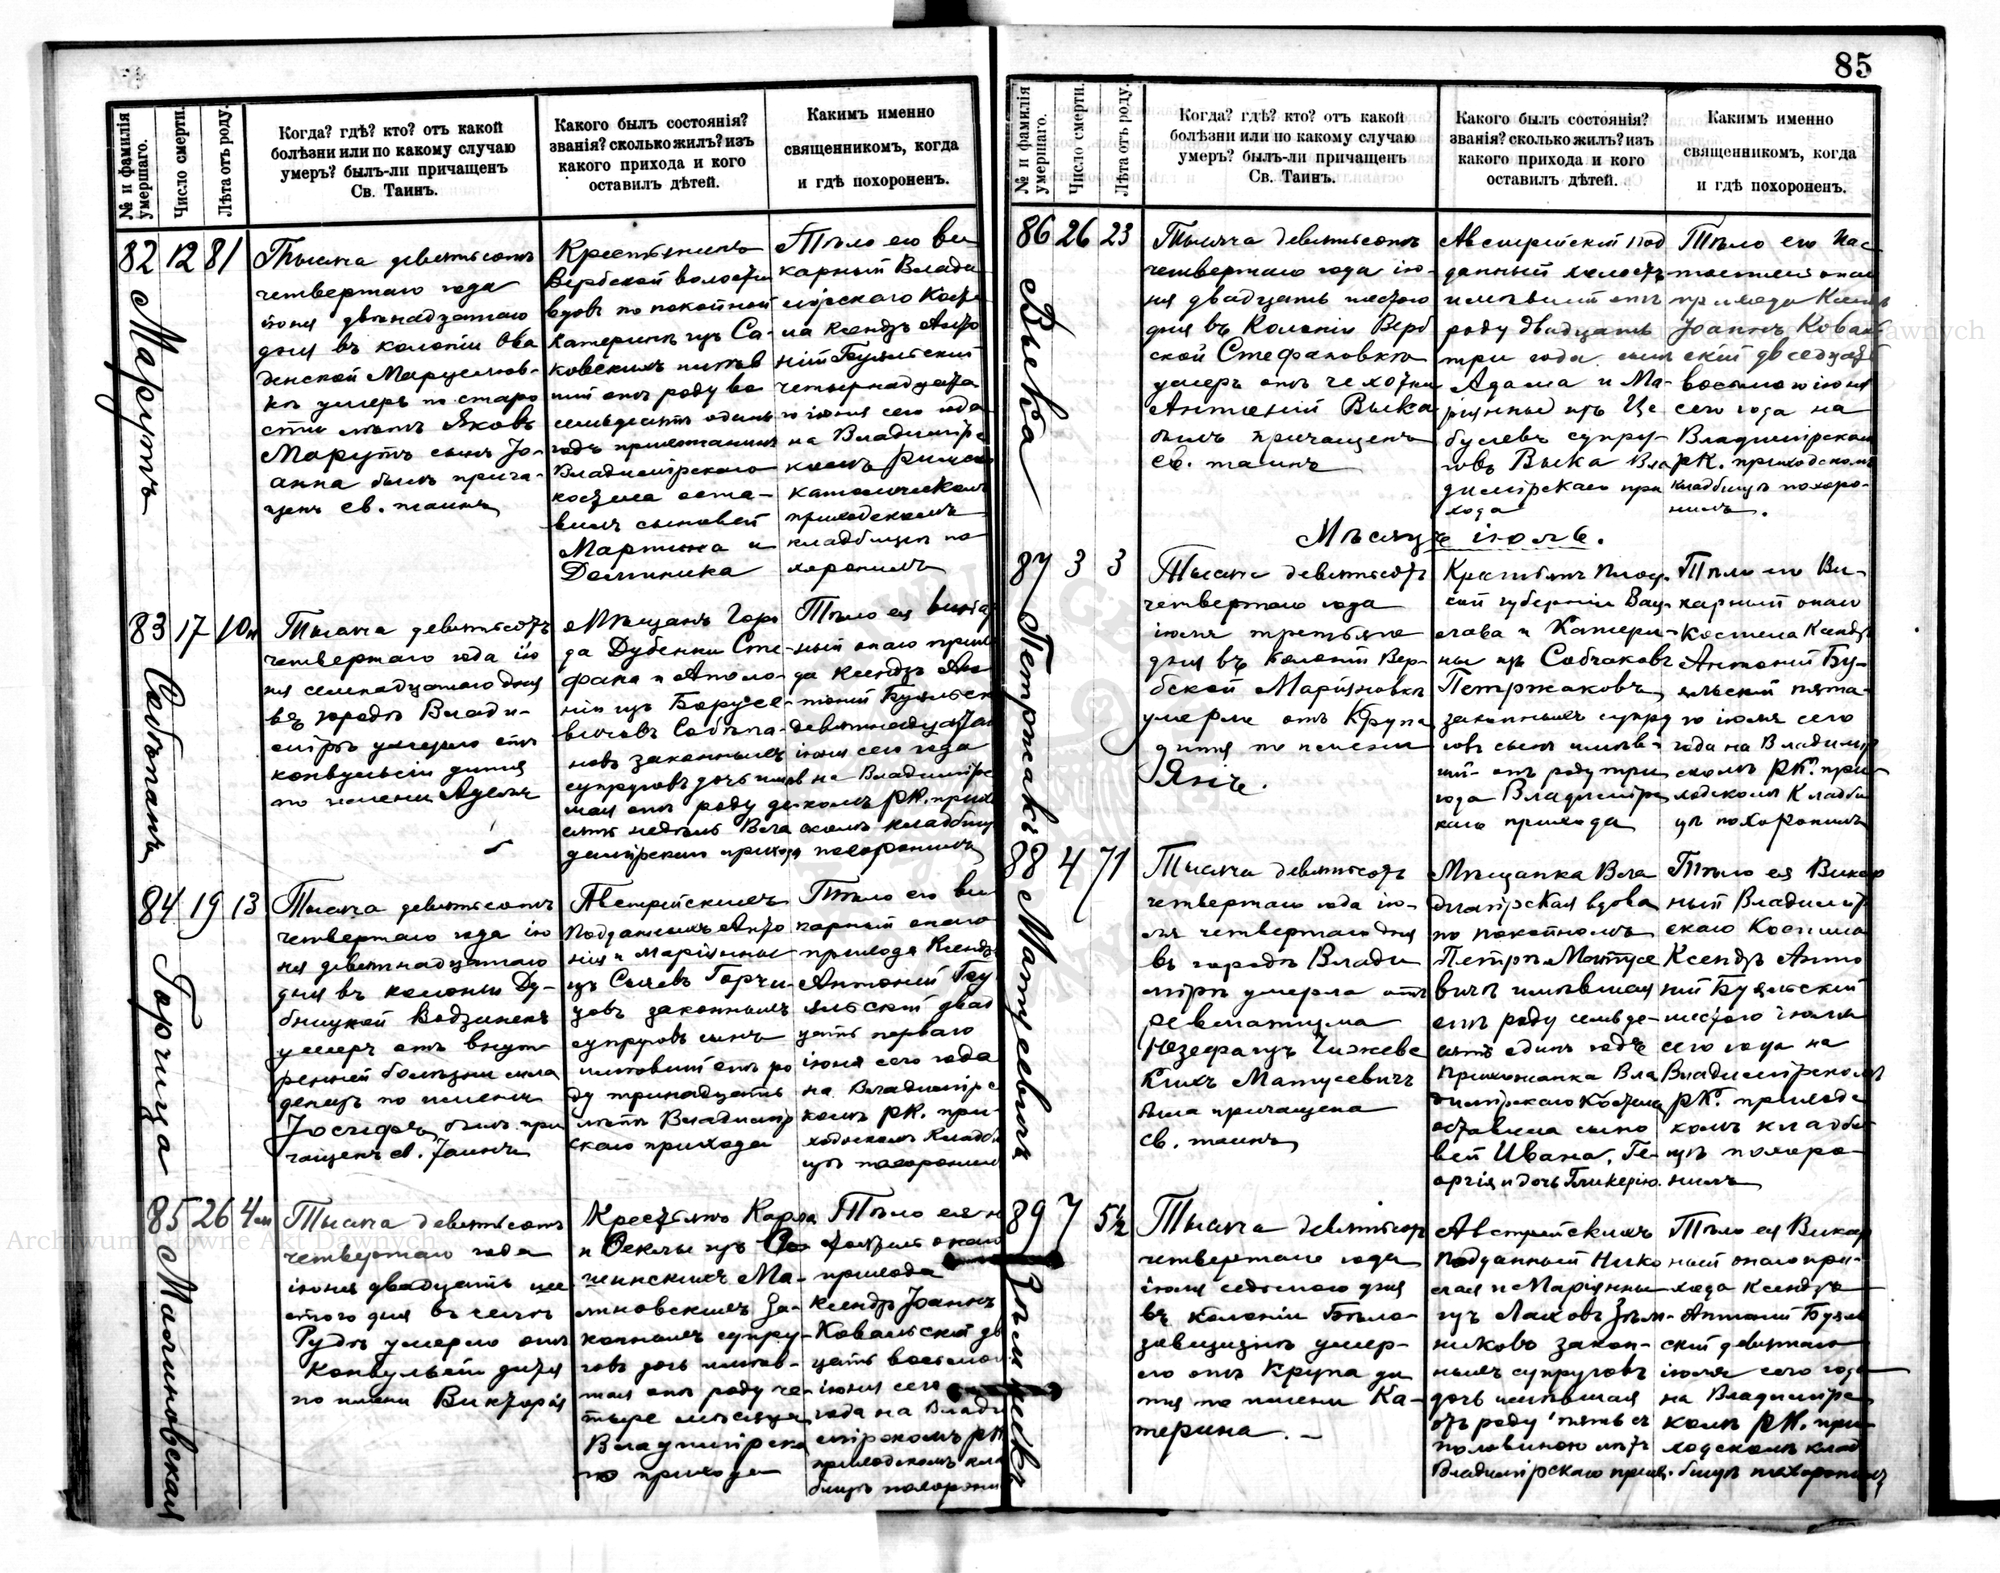 85
№ и фамилія умершаго.
Число смерти.
Лѣта отъ роду.
Когда? гдѣ? кто? отъ какой
болѣзни или по какому случаю
умеръ? былъ-ли причащенъ
Св. Таинъ.
Какого былъ состоянія?
званія? сколько жилъ? изъ
какого прихода и кого
оставилъ дѣтей.
Каким именно
священникомъ, когда
и гдѣ похороненъ.
82 12 81
Марутъ
Тысяча девятьсотъ
четвертаго года
іюня двѣнадцатаго
дня въ колоніи
умеръ по старо
сти лѣтъ Яковъ
Марутъ сынъ Іо-
анна былъ прича-
щенъ св. таинъ
Крестьянинъ
Вербской волости
вдовъ по покойной
Катеринѣ изъ Са-
ковскихъ имѣв
шій отъ роду во
семьдесятъ одинъ
годъ прихожанинъ
Владимірскаго
костела оста-
вилъ сыновей
Мартина и
Доминика
Тѣло его ви
карный Влади
мірскаго Косте
ла Ксендзъ Анто
ній
четырнадцата
го іюня сего года
на Владимірс
комъ Римско
католическомъ
приходскомъ
кладбищѣ по
хоронилъ
83 17 10 н
Собѣпанъ
Тысяча девятьсотъ
четвертаго года ію
ня семнадцатаго дня
въ городѣ Влади-
мірѣ умерло отъ
конвульсіи дитя
по имени Аделя
Мѣщанъ Горо
да Дубенки Сте-
фана и Аполо-
ніи изъ Борусе-
вичовъ Собѣпа-
новъ законныхъ
супруговъ дочь имѣв
шая отъ роду де
сять недѣль Вла
димірскаго прихода
Тѣло ея викар
ный онаго прихо
да Ксендзъ Ан
тоній
девятнадцатаго
іюня сего года
на Владимірс
комъ РК. прих
скомъ кладбищѣ
похоронилъ
84 19 13
Горчица
Тысяча девятьсотъ
четвертаго года ію
ня девятнадцатаго
дня въ колоніи Ду-
бницкой Водзинекъ
умеръ отъ внут
ренней болѣзни мла
денецъ по имени
Іосифъ, былъ при
чащенъ св. Таинъ
Австрійскихъ
Подданныхъ Анто
нія и Маріанны
изъ Сычевъ Горчи-
цовъ законныхъ
супруговъ сынъ
имѣвшій отъ ро
ду тринадцать
лѣтъ Владимір
скаго прихода
Тѣло его ви
карный онаго
прихода Ксендзъ
Антоній
двад
цать перваго
іюня сего года
на Владимірс
комъ РК. при-
ходскомъ Кладби
щѣ похоронилъ
85 26 4 м
Малиновская
Тысяча девятьсотъ
четвертаго года
іюня двадцать ше
стого дня въ селѣ
Рудѣ умерло отъ
Конвульсіи дитя
по имени Викторія
Крестьянъ Карла
и Феклы изъ
Ма-
линовскихъ За-
конныхъ супру-
говъ дочь имѣв-
шая отъ роду че-
тыре мѣсяца
Владимірска
го прихода
Тѣло ея
онаго
прихода
Ксендзъ Іоаннъ
Ковальскій дв
цать восьмого
іюня сего
года на Влади
мірскомъ РК
приходскомъ кла
бищѣ похорони
86 26 23
Выка
Тысяча девятьсотъ
четвертаго года ію-
ня двадцать шестого
дня въ Колоніи Верб
ской Стефановкѣ
умеръ отъ чехотки
Антоній Выка
былъ причащенъ
св. таинъ
Австрійскій под
данный холостъ
имѣвшій отъ
роду двадцать
три года сынъ
Адама и Ма-
ріанны изъ Це
булевъ супру-
говъ Выка Вла
димірскаго при
хода
Тѣло его Нас
тоятель онаго
прихода Ксендзъ
Іоаннъ Коваль
скій двадцать
восьмого іюня
сего года на
Владимірскомъ
РК. приходскомъ
кладбищѣ похоро-
нилъ.
Мѣсяцъ іюль.
87 3 3
Петржакъ
Тысяча девятьсотъ
четвертаго года
іюля третьяго
дня въ Колоніи Вер-
бской Маріановкѣ
умерло отъ Крупа
дитя по имени
Янъ.
Крестьянъ Плоц-
кой губерніи Вац-
лава и Катери-
ны изъ Собчаковъ
Петржаковъ,
законныхъ супру
говъ сынъ имѣв-
шій отъ роду три
года Владимірс
каго прихода
Тѣло его Ви-
карный онаго
Костела Ксендзъ
Антоній
пята-
го іюля сего
года на Владимір
скомъ РК. при-
ходскомъ Кладби
щѣ похоронилъ
88 4 71
Матусевичъ
Тысяча девятьсотъ
четвертаго года ію-
ля четвертаго дня
въ городѣ Влади
мірѣ умерла отъ
ревматизма
Матусевичъ
была причащена
св. таинъ
Мѣщанка Вла
димірская вдова
по покойномъ
Петрѣ Матусе
вичѣ имѣвшая
отъ роду семьде-
сятъ одинъ годъ
Прихожанка Вла
димірскаго Костела
оставила сыно
вей Ивана, Ге-
оргія и дочь Гликерію.
Тѣло ея Викар
ный Владимір
скаго Костела
Ксендзъ Анто
ній
шестого іюля
сего года на
Владимірскомъ
РК. приходс
комъ кладби
щѣ похоро-
нилъ
89 7 5½
Зѣмникъ
Тысяча девятьсотъ
четвертаго года
іюля седьмого дня
въ колоніи Бѣло-
завищизнѣ умер-
ло отъ Крупа ди
тя по имени Ка-
терина. –
Австрійскихъ
Подданныхъ Нико
лая и Маріанны
изъ Лаховъ Зѣм-
никовъ закон-
ныхъ супруговъ
дочь имѣвшая
отъ роду пять съ
половиною лѣтъ
Владимірскаго прих.
Тѣло ея Викар
ный онаго при-
хода Ксендзъ
Антоній
девятаго
іюля сего года
на Владимірс
комъ РК. при-
ходскомъ клад
бищѣ похоронилъ
Archiwum Główne Akt Dawnych